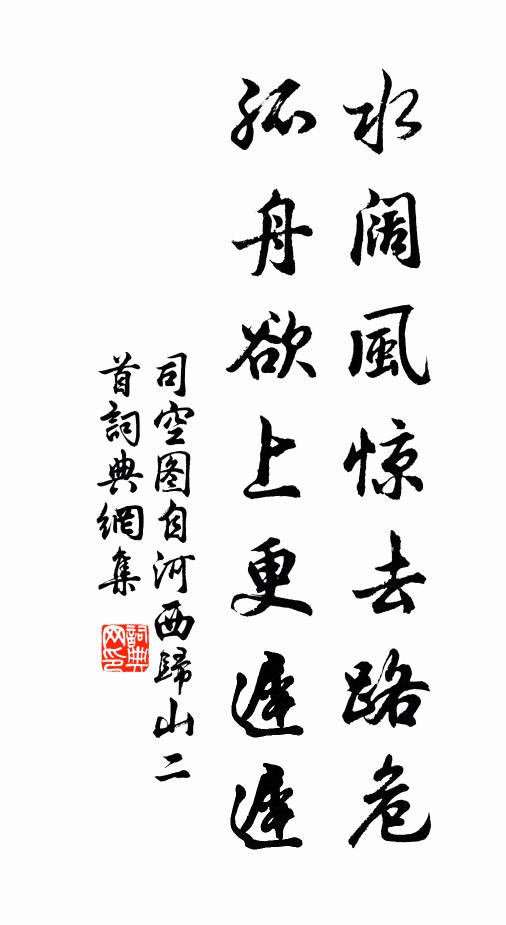 水阔風惊去路危
孤舟欲上更遲遲
司空图自河西歸山二
首詞典網集
詞典
网印